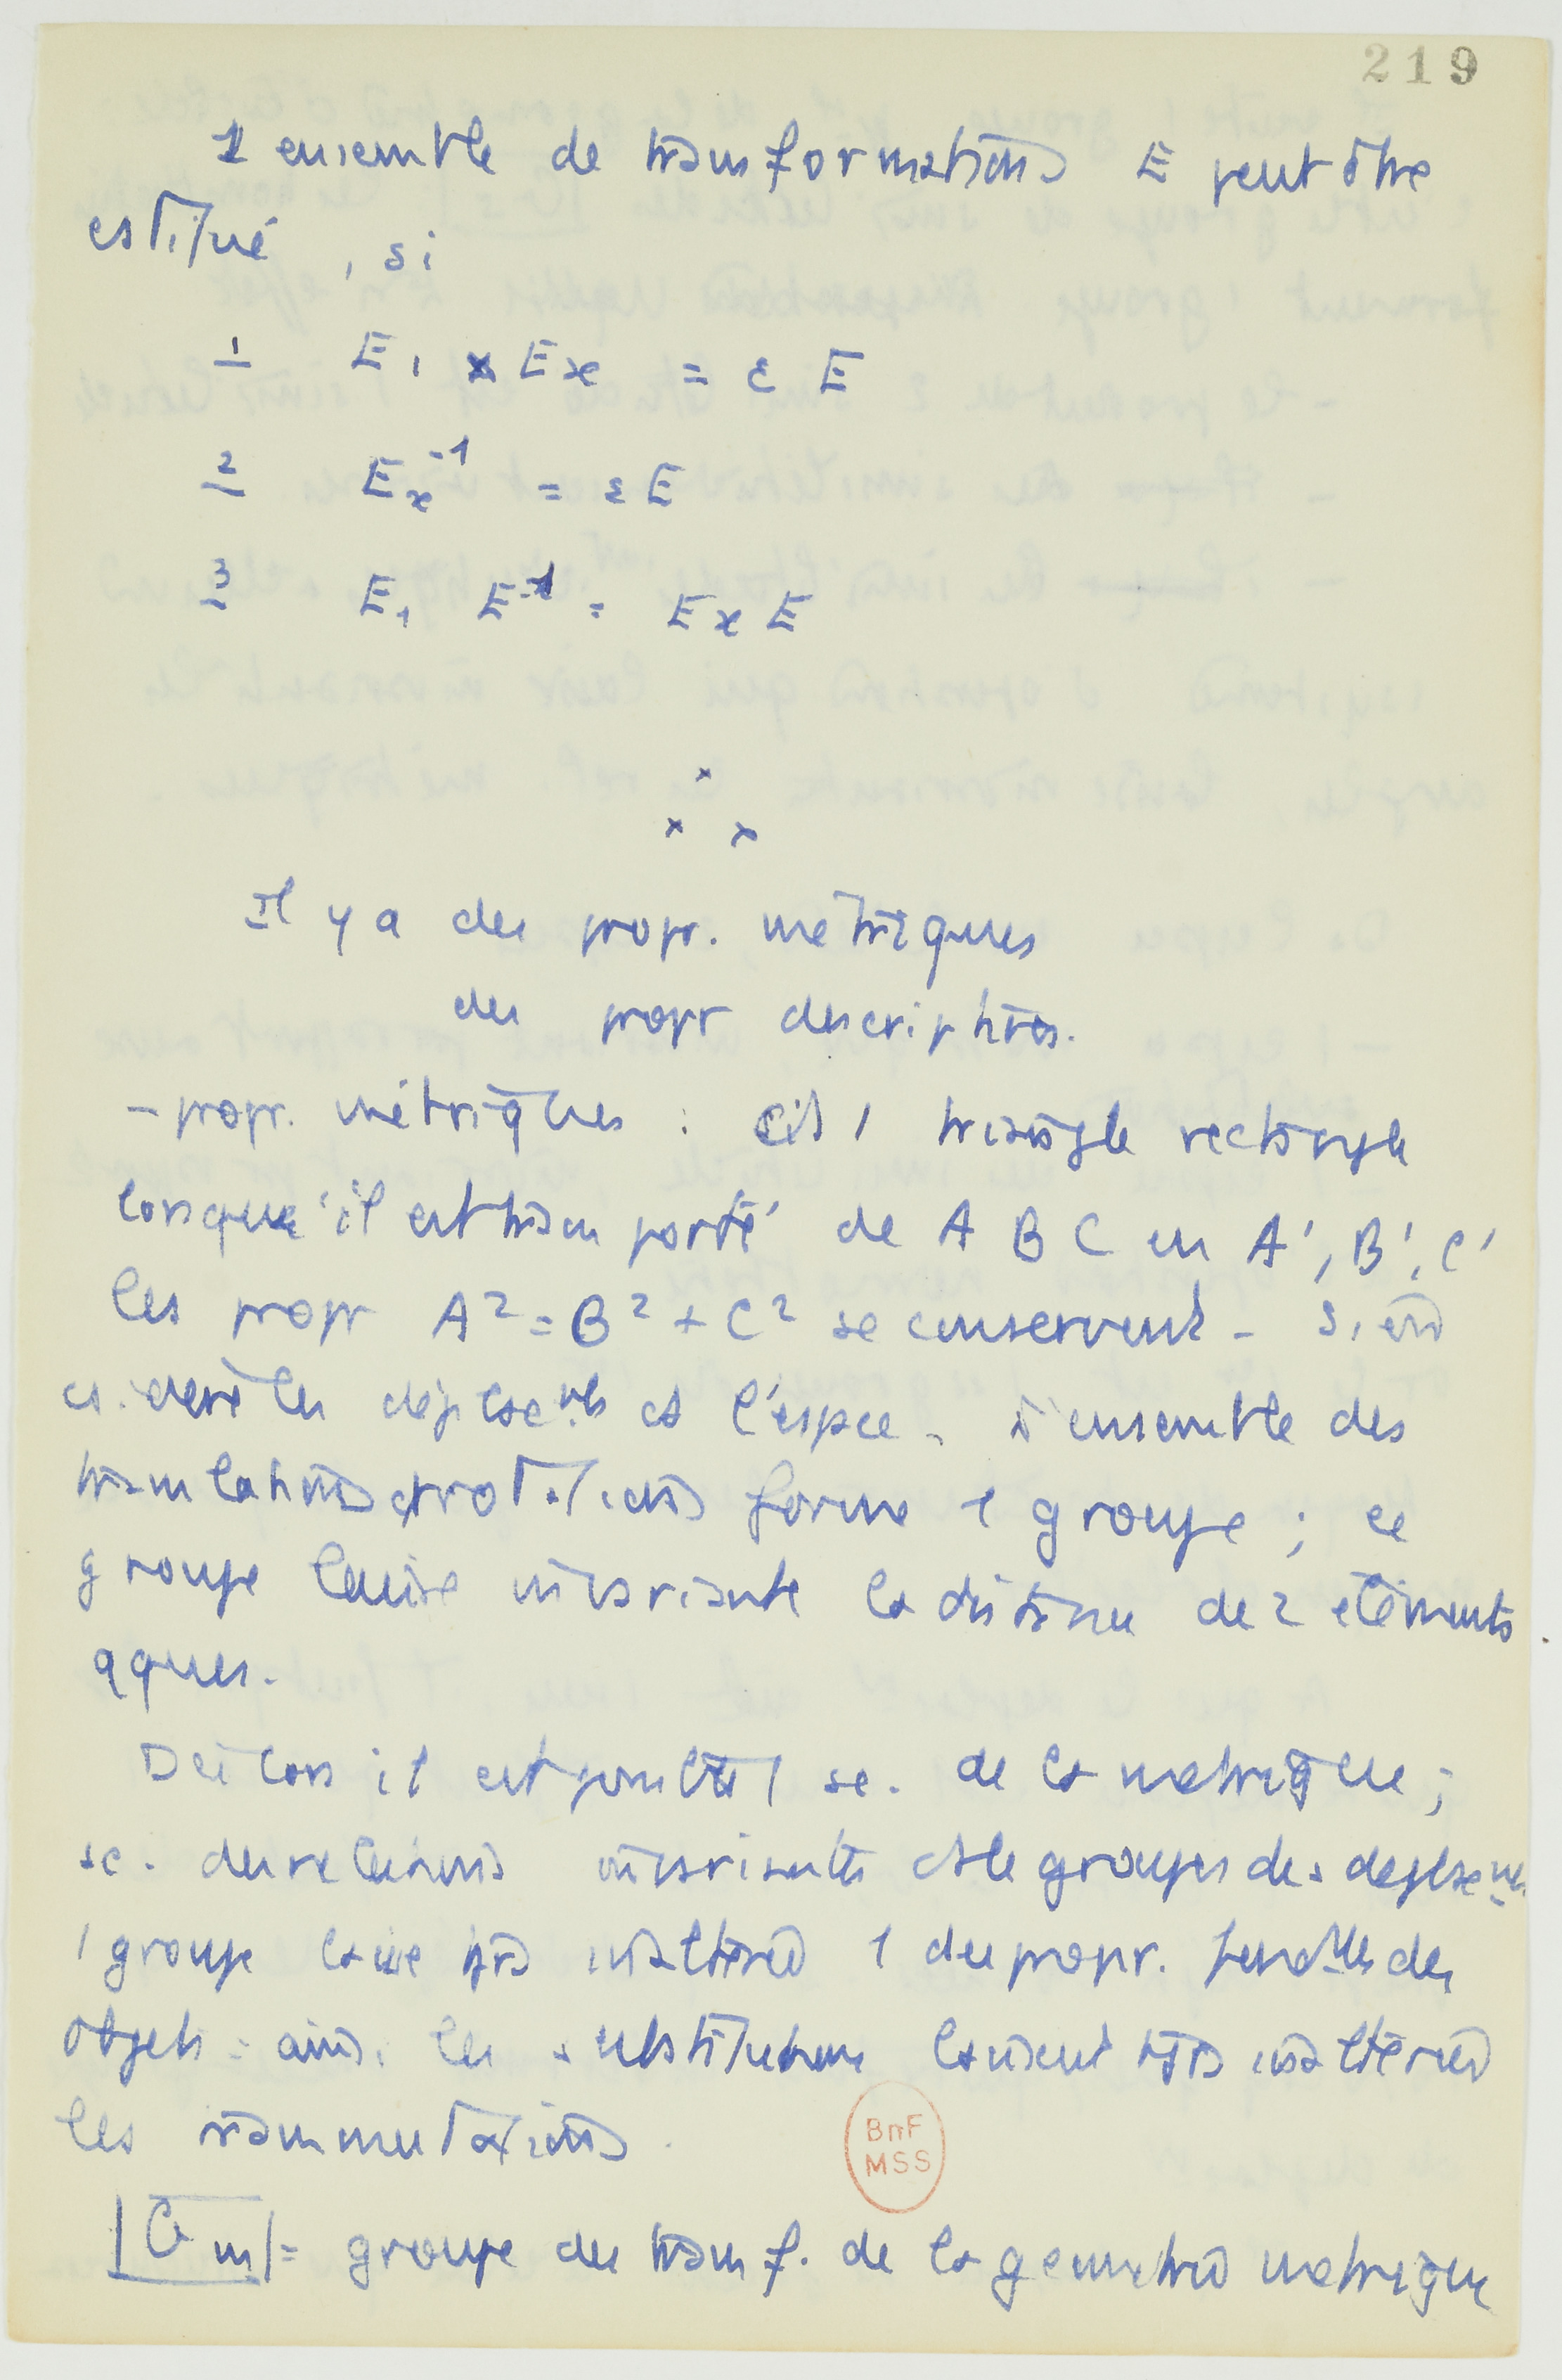 219
1 ensemble de transformations E peut être
cstitué, si
1 E1 x Ex = ε E
2 Ex-1 = ε E
3 E1 E-1 = Ex E
x
x x
Il y a des propr. métriques
des propr descriptives.
- propr. métriques : 1 triangle rectangle
lorsque il est transporté de A B C en A', B', C'
les propr A2 = B2 + C2 se conservent -
les déplacemts ds l'espace. L'ensemble des
translations et rotations forme 1 groupe ; ce
groupe laisse invariante la distance de 2 éléments
qques.
Dès lors il est possible 1 sc. de la métrique ;
sc. des relations invariantes ds le groupes des déplacemts
1 groupe laisse tjrs inaltérée 1 des propr. des
objets : ainsi les substitutions laissent tjrs inaltérées
les
Gm = groupe des transf. de la géométrie métrique
BnF
MSS